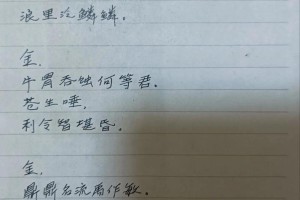 浪里泛鳞鳞。
金,
牛胃吞蚀何等君。
苍生唾,
利令智堪昏。
金,
鼎鼎名流作敏。